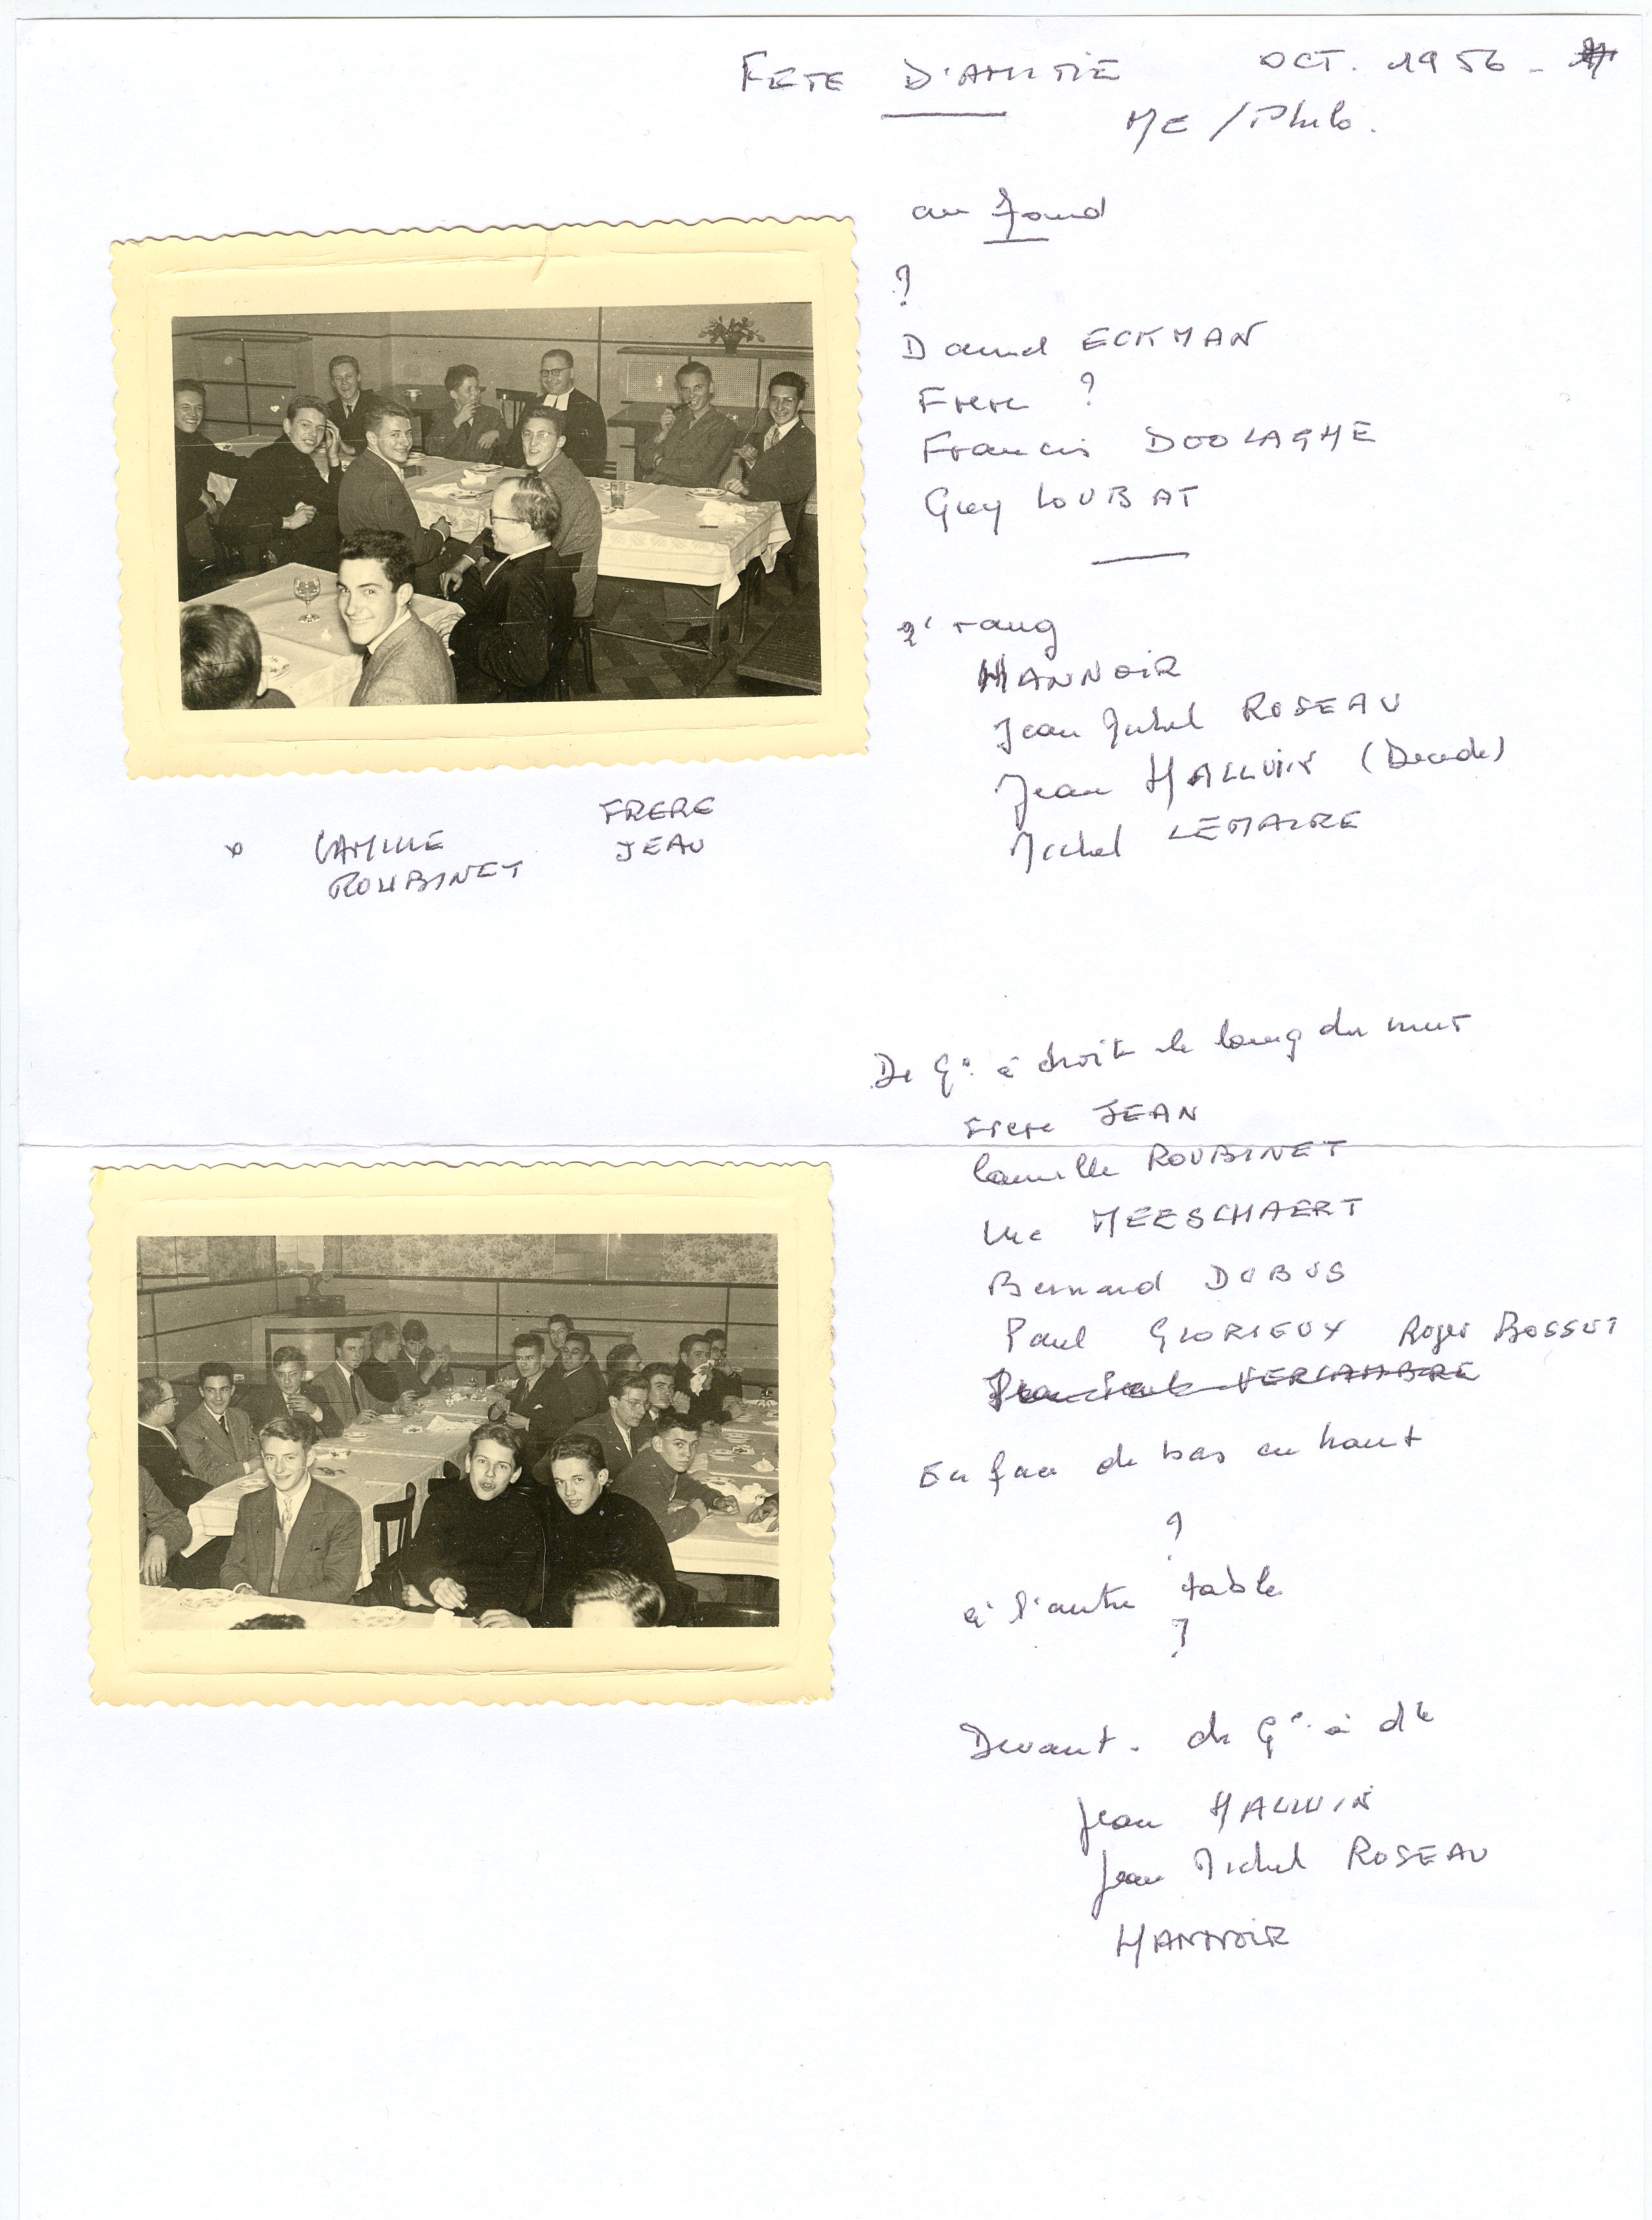 FETE D'AMITIE OCT. 1956 -
ME / Philo.
au fond
?
Daniel ECKMAN
Frere ?
Francis DOOLAGHE
Guy LOUBAT
2' rang
HANNOIR
Jean Michel ROSEAU
Jean HALLUIN (Decede)
Michel LEMAIRE
CAMILLE
ROUBINET
FRERE
JEAN
De Ge à droite le long du mur
Frere JEAN
Camille ROUBINET
Luc MEESCHAERT
Bernard DUBUS
Paul GLORIEUX Roger BOSSUT
VERCAMBRE
En face de bas en haut
?
à l'autre table
?
Devant. de Ge à dte
Jean HALLUIN
Jean Michel ROSEAU
HANNOIR